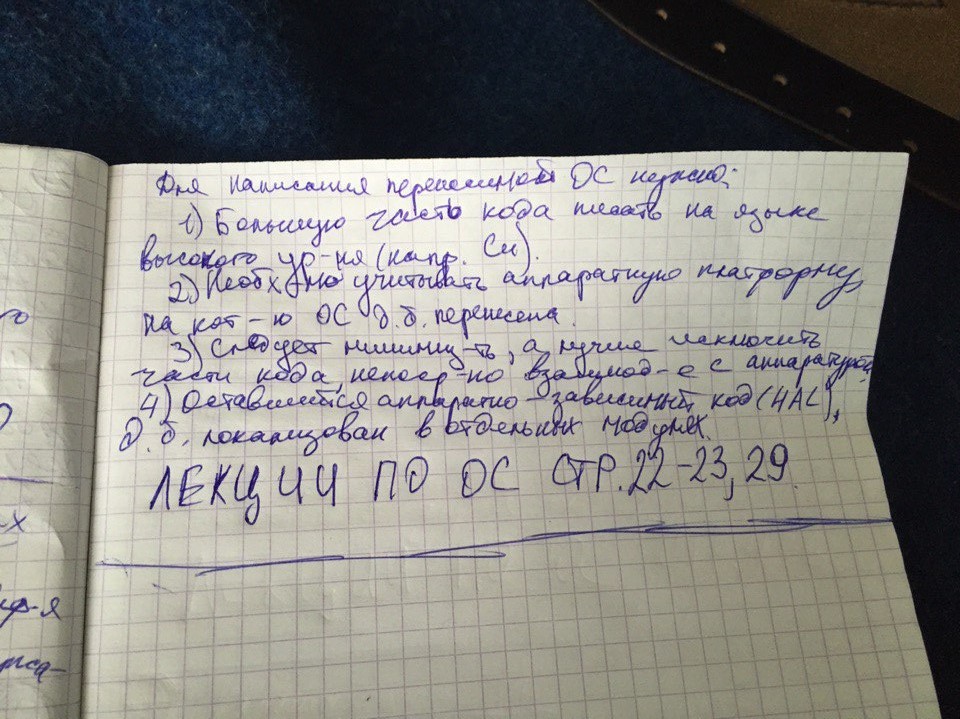 Для написания переносимой ОС нужно:
1) Большую часть кода писать на языке
высокого ур-ня (напр. Си).
2) Необх-мо учитывать аппаратную платформу,
на кот-ю ОС д.б. перенесена.
3) Следует миними-ть, а лучше исключить
части кода, непоср-но взаимод-е с аппаратурой.
4) Оставшийся аппаратно-зависимый код (HAL),
д.б. локализован в отдельных модулях.
ЛЕКЦИИ ПО ОС СТР.22-23, 29.
го
-х
-я